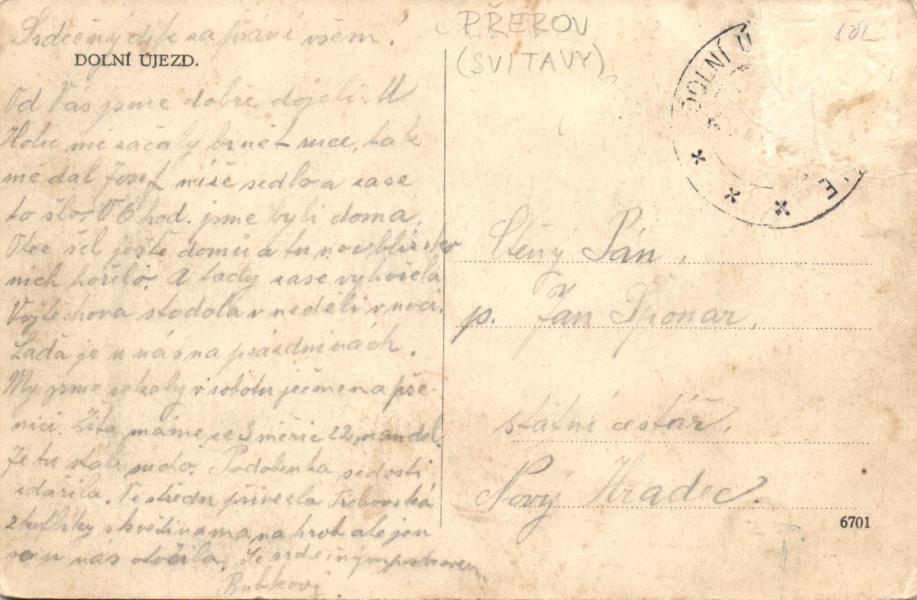 Srdečný dík za přaní všem!
DOLNÍ ÚJEZD.
Od Vás jsme dobře dojeli. U
mě začaly brnět ruce, tak
mě dal Josef níže sedlo a zase
to šlo. V 6 hod. jsme byli doma.
Otec šel ještě domů a tu noc
nich hořelo. A tady zase vyhořela
Vojtěchova stodola v neděli v noci.
Laďa je u nás na prázdninách.
My jsme v sobotu ječmen a pše-
nici. Žita máme ze 3 měřic 22 mandel.
Je tu stále sucho. Podobenka se dosti
zdařila. Ve středu přivezla Třebovská
2 koflíky s květinama na hrob ale jen
se u nás otočila. Se srdečným pozdravem
PŘEROV
(SVITAVY)
DOLNÍ Ú
Ctěný Pán
p. Jan
státní cestář,
Nový Hradec.
6701